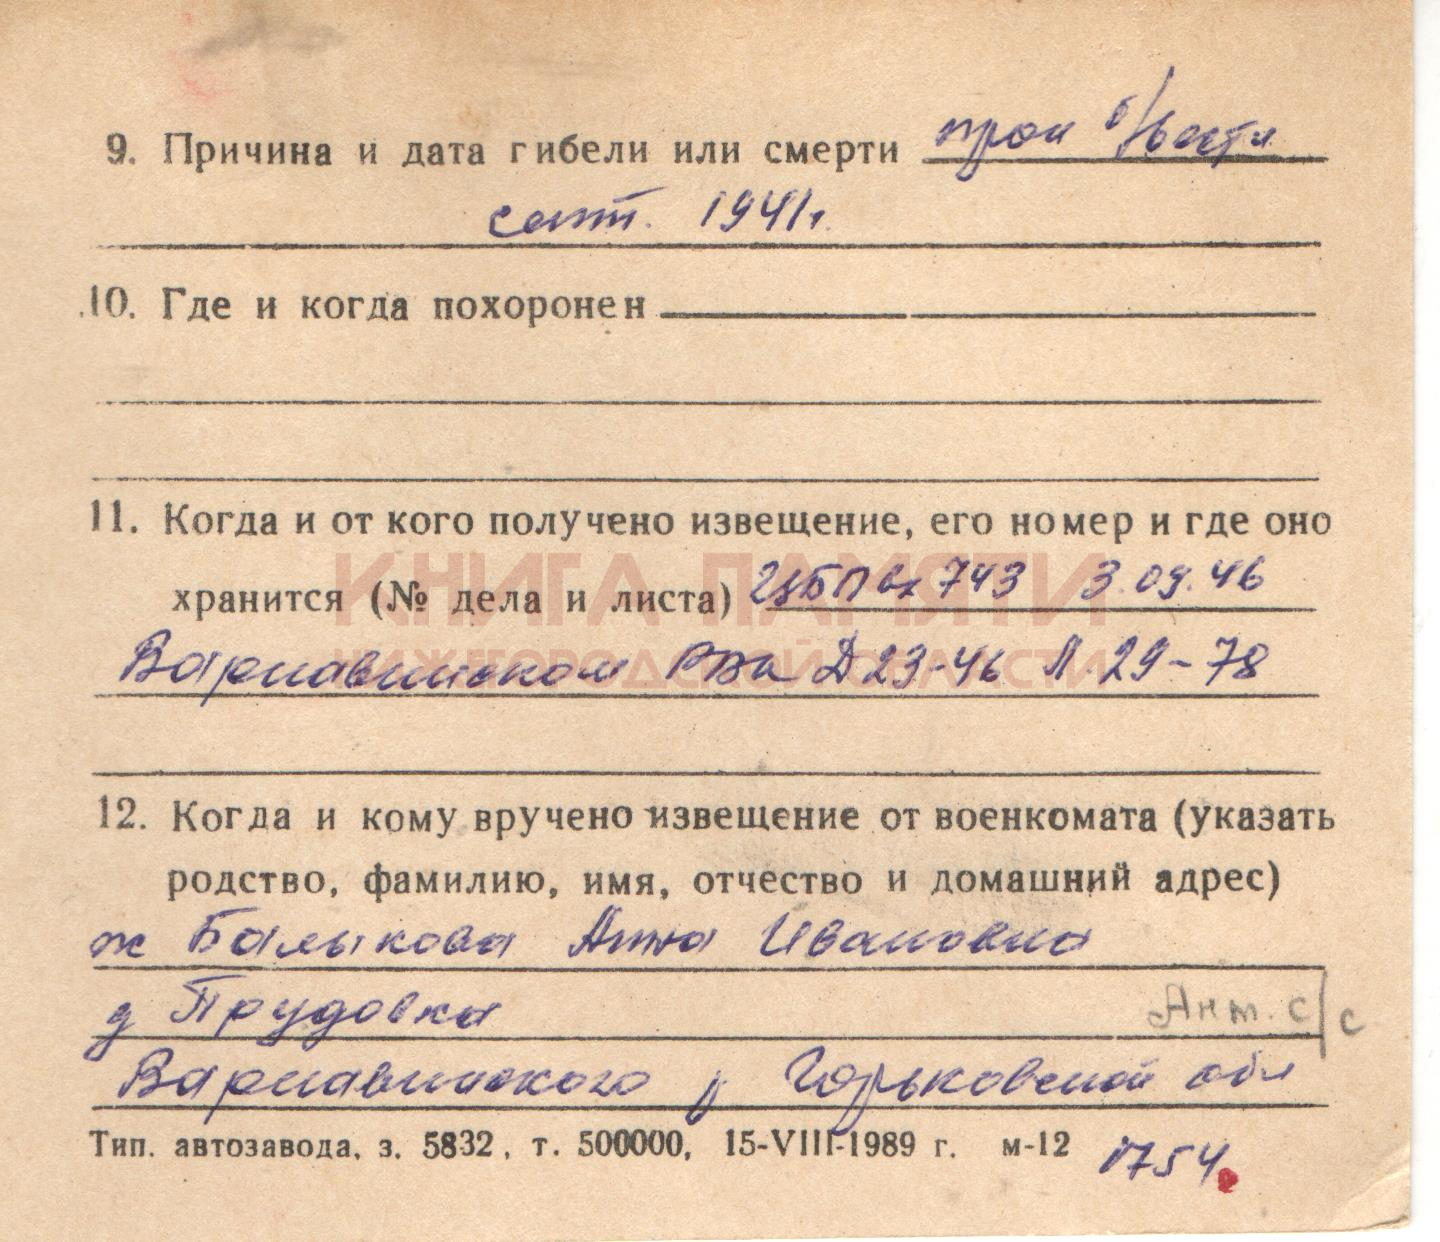 9. Причина и дата гибели или смерти проп б/вести
сент. 1941г.
10. Где и когда похоронен
11. Когда и от кого получено извещение, его номер и где оно
КНИГА ПАМЯТИ
хранится (№ дела и листа) ЦБП вх 743 3.09.46
НИЖЕГОРОДСКОЙ ОБЛАСТИ
Варнавинском РВК Д 23-46 Л. 29-78
12. Когда и кому вручено извещение от военкомата (указать
родство, фамилию, имя, отчество и домашний адрес)
ж Балыкова Анна Ивановна
д Прудовка Ант. с/с
Варнавинского р Горьковской обл
Тип. автозавода, з. 5832, т. 500000, 15-VIII-1989 г. м-12 1754